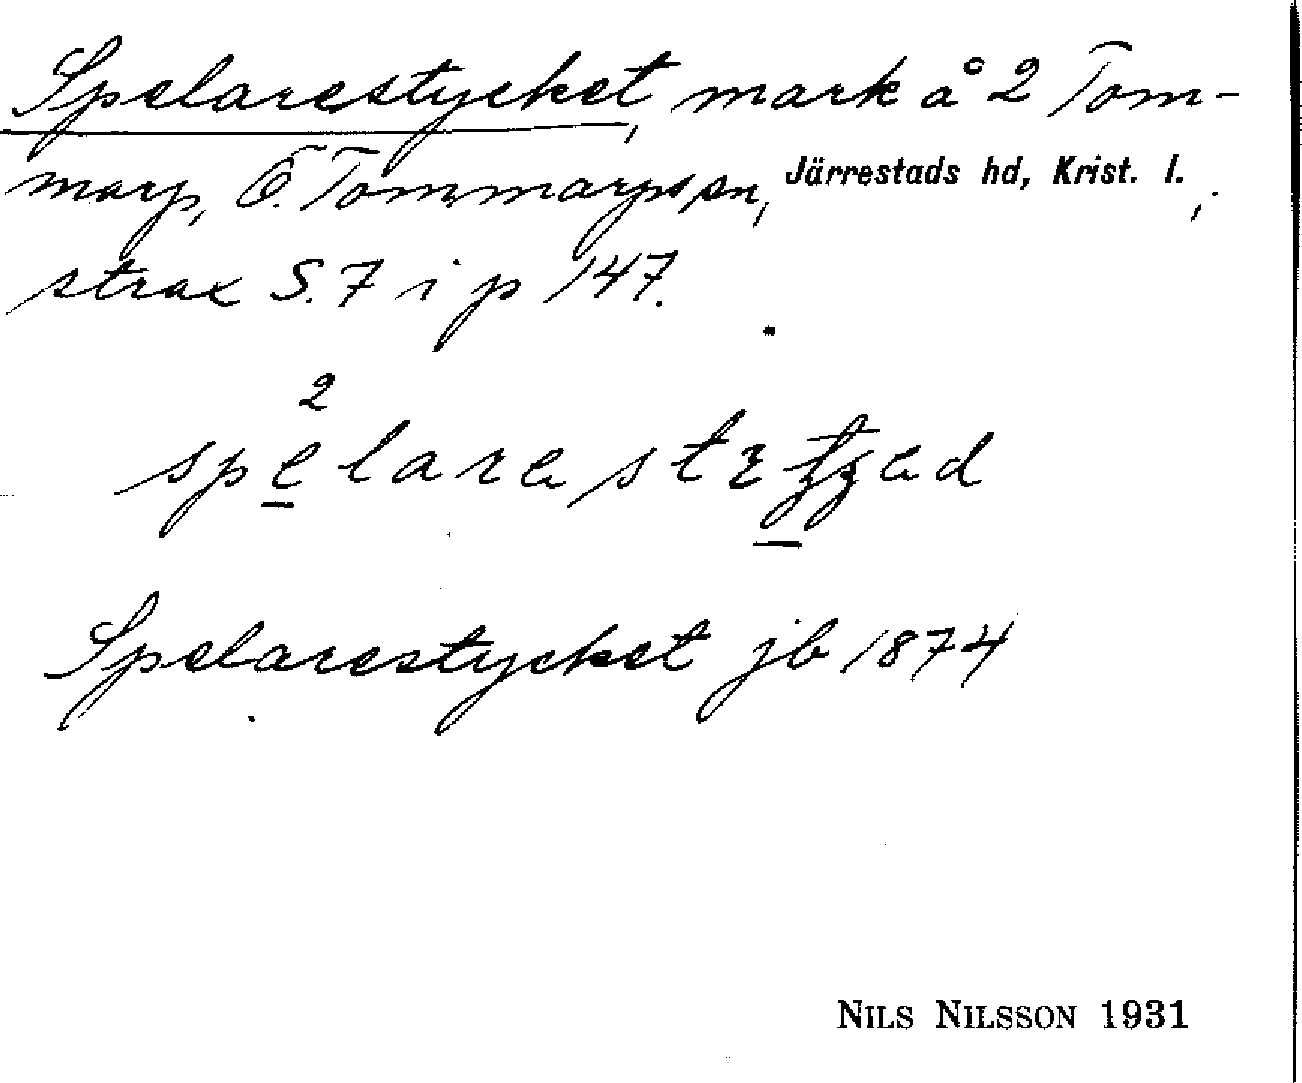 Spelarestycket, mark å 2 Tom-
marp, Ö. Tommarps sn, Järrestads hd, Krist. l.,
strax S. 7 i p 147.
2
Spelarestycket jb 1874
NILS NILSSON 1931